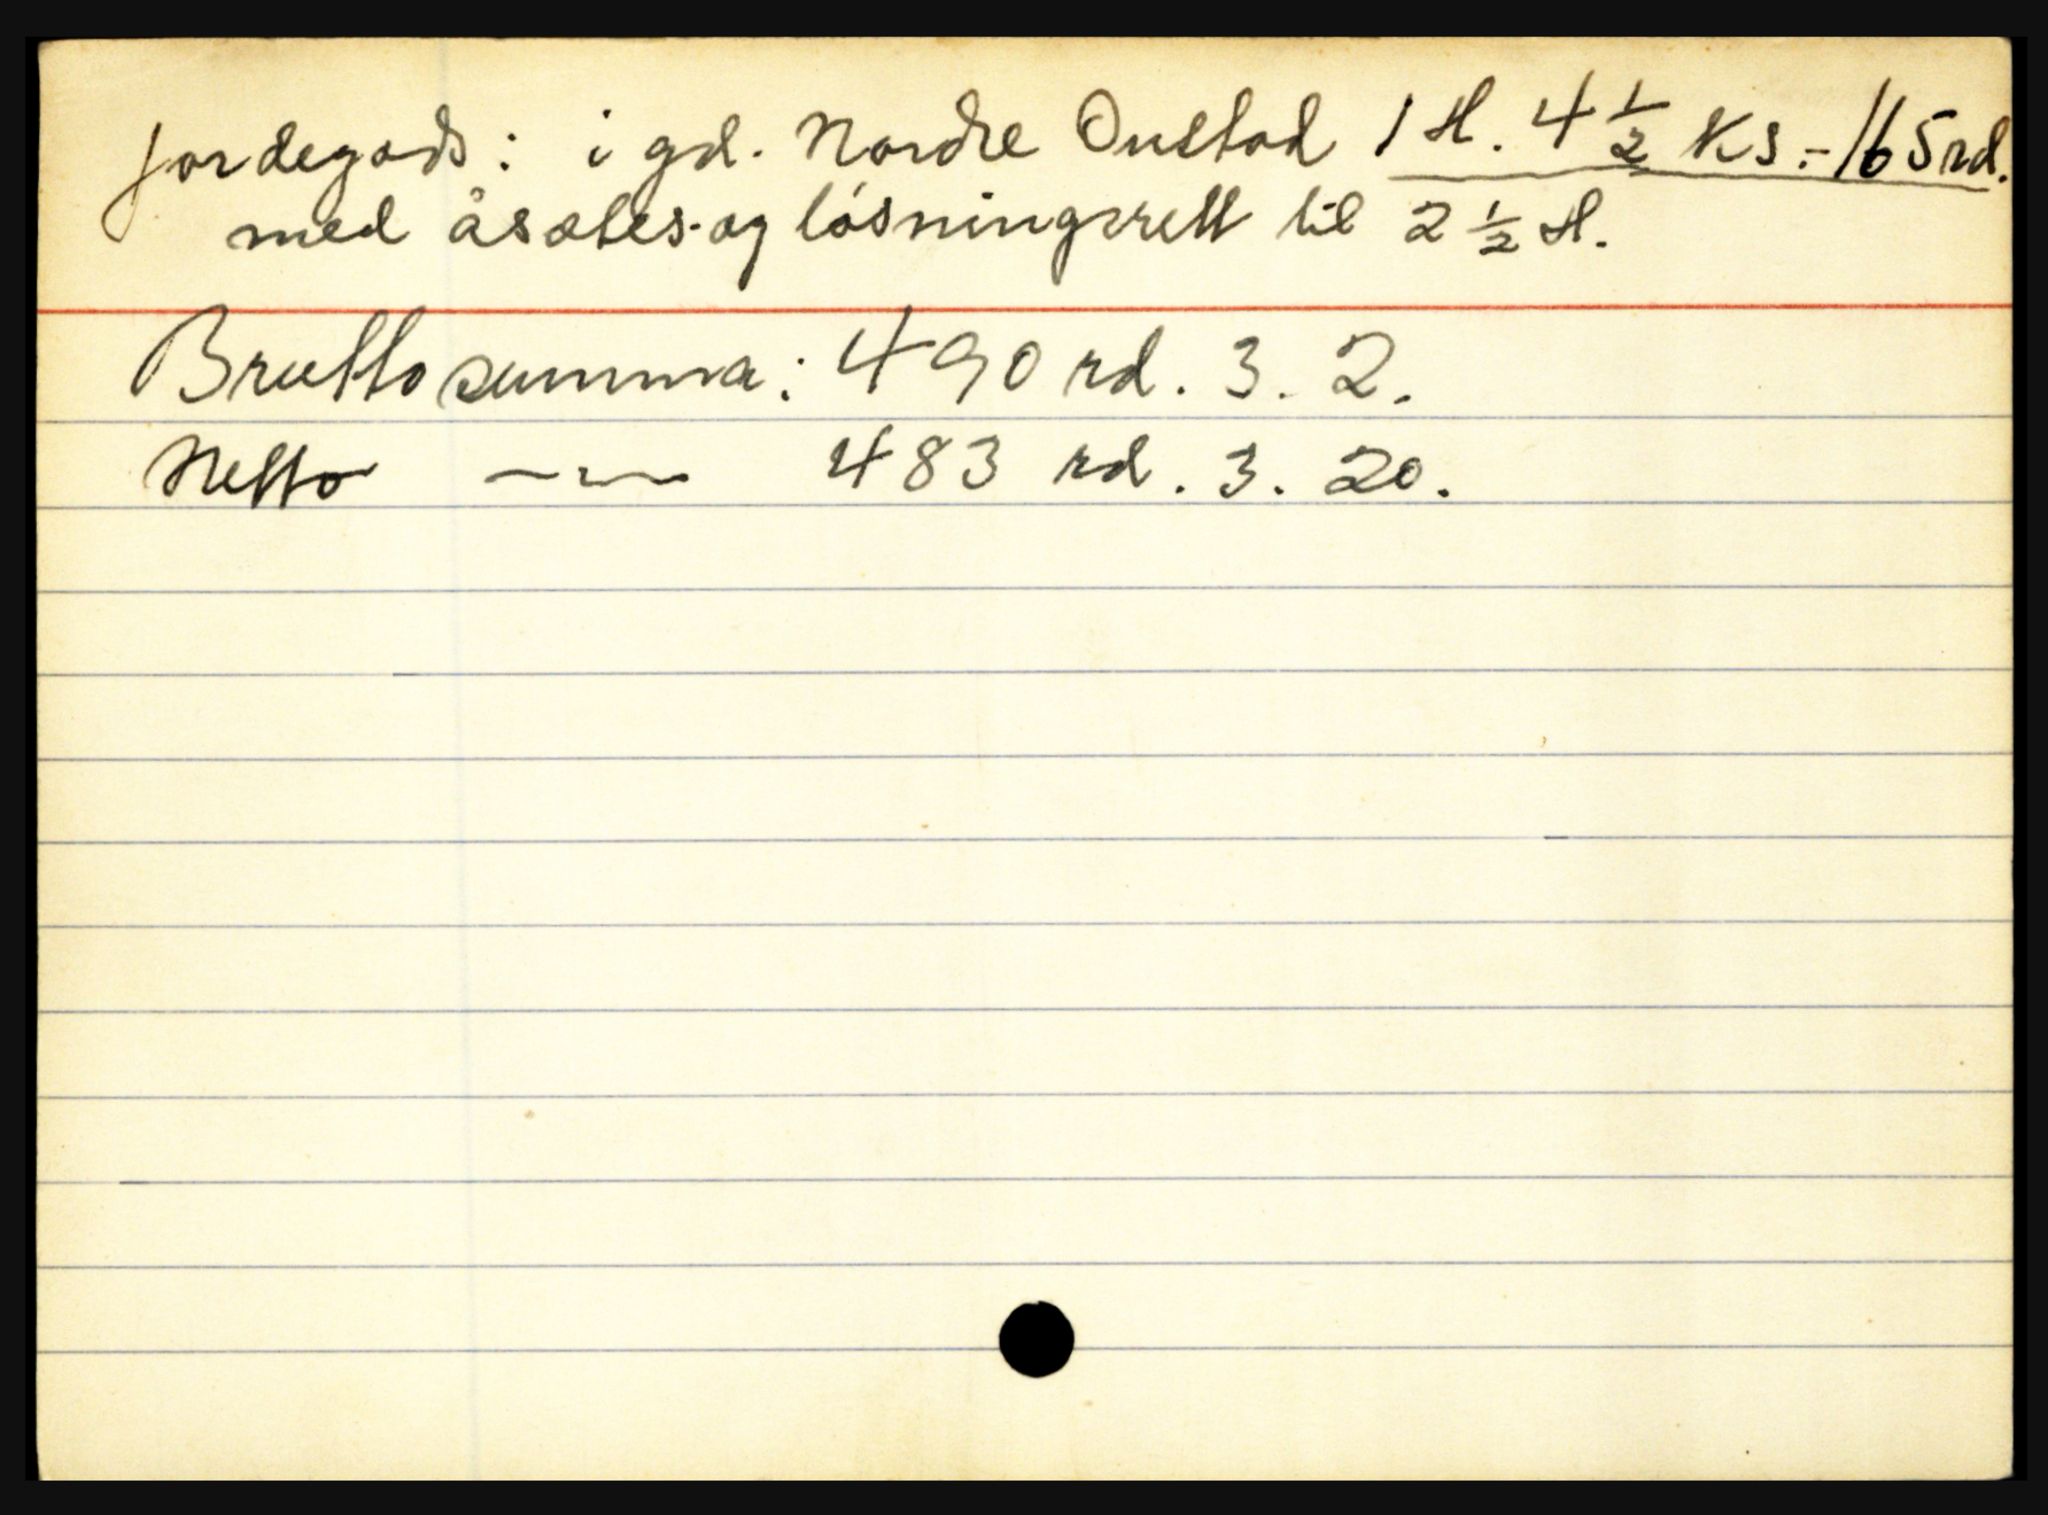 jordegods: i gd. Nordre Onstad 1 H. 4 1/2 Ks.- 165 rd.
med åsætes- og løsningsrett til 2 1/2 H.
Brutto summa: 490 rd. 3. 2.
Netto —〃— 483 rd. 3. 20.